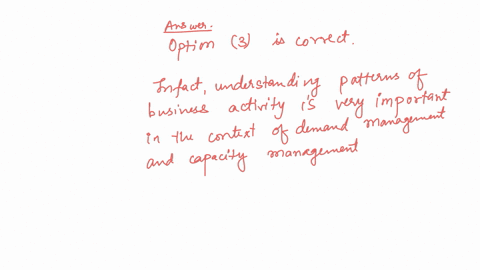 Answer.
Option (3) is correct.
Infact, understanding patterns of
business activity is very important
in the context of demand management
and capacity management